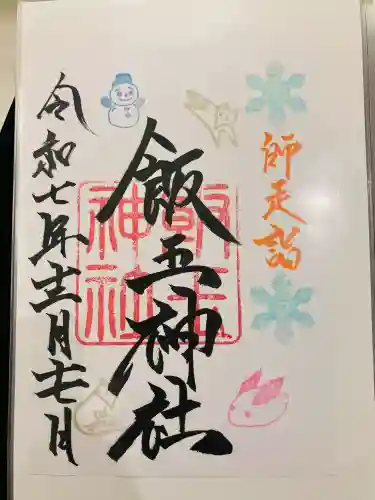 師走詣
飯玉神社
飯玉
神社
令和七年十二月十七日